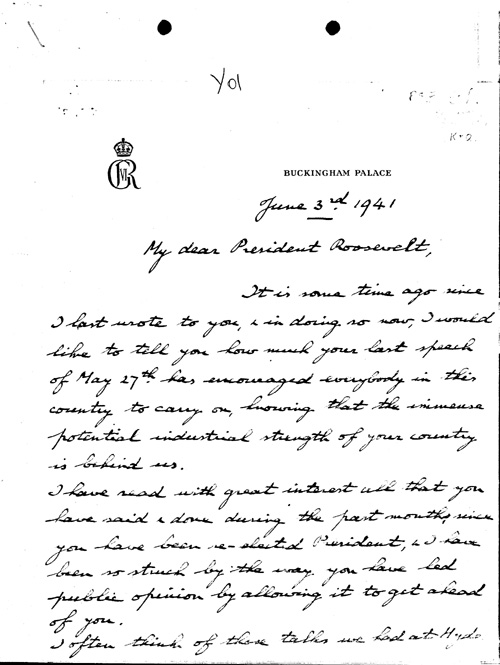 Yo1
BUCKINGHAM PALACE
June 3rd 1941
My dear President Roosevelt,
It is some time ago since
I last wrote to you, & in doing so now, I would
like to tell you how much your last speech
of May 27th has encouraged everybody in this
country to carry on, knowing that the immense
potential industrial strength of your country
is behind us.
I have read with great interest all that you
have said & done during the past months, since
you have been re-elected President, & I have
been so struck by the way you have led
public opinion by allowing it to get ahead
of you.
I often think of those talks we had at Hyde